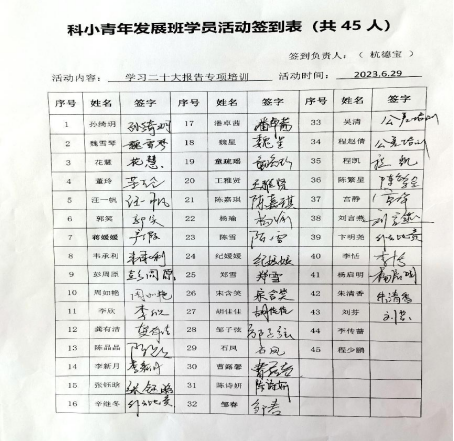 科小青年发展班学员活动签到表（共 45 人）
签到负责人：（ 杭德宝 ）
活动内容： 学习二十大报告专项培训 活动时间： 2023.6.29
序号 姓名 签字 序号 姓名 签字 序号 姓名 签字
1 孙绮玥 孙绮玥 17 潘卓茜 潘卓茜 33 吴清 公差培训
2 魏雪琴 魏雪琴 18 魏星 魏星 34 程赵倩 公差培训
3 花慧 花慧 19 童疏瑶 35 程凯 程凯
4 董玲 20 王雅贤 王雅贤 36 陈繁星 陈繁星
5 汪一帆 汪一帆 21 陈嘉琪 陈嘉琪 37 宫静 宫静
6 郭笑 郭笑 22 杨瑜 杨瑜 38 刘言燕 刘言燕
7 蒋媛媛 23 陈雪 陈雪 39 卞明尧 外出比赛
8 韦承利 韦承利 24 纪媛媛 纪媛媛 40 李恬 李恬
9 彭周原 彭周原 25 郑雪 郑雪 41 杨启明 杨启明
10 周如艳 周如艳 26 宋含笑 宋含笑 42 朱清香 朱清香
11 李欣 李欣 27 胡佳佳 胡佳佳 43 刘芬 刘芬
12 龚有洁 龚有洁 28 邹子弦 邹子弦 44 李传蕾
13 陈晶晶 陈晶晶 29 石凤 石凤 45 程少鹏
14 李新月 李新月 30 曹露馨 曹露馨
15 张钰晗 张钰晗 31 陈诗妍 陈诗妍
16 辛继冬 外出比赛 32 邹春 邹春